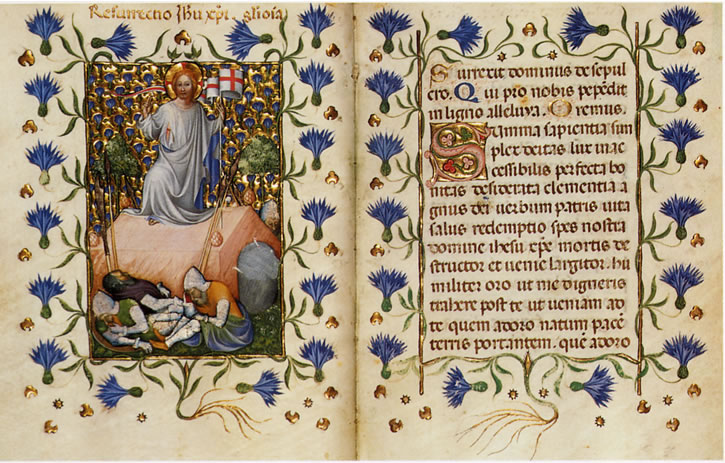 Resurrectio Jhu xpi. gliosa
Surrexit dominus de sepul
cro. Qui pro nobis pepēdit
in ligno alleluya. Oremus.
Summa sapientia sim
plex deitas lux inac
cessibilis perfecta bo
nitas desiderata clementia a
gnus dei verbum patris vita
salus redemptio spes nostra
domine ihesu xp̄e mortis de
structor et venie largitor. hu
militer oro ut me digneris
trahere post te ut veniam ad
te quem adoro natum pacē
terris portantem. quē adoro